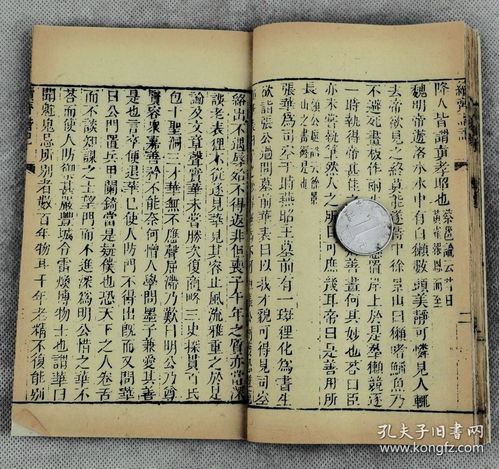 續齊諧記
降人皆謂真孝昭也 蔡邕論云昔日黃雀報恩而至
魏明帝遊洛水水中有白獺數頭美靜可憐見人輒
去帝欲見之終莫能遂侍中徐景山曰獺嗜鯔魚乃
不避死畫板作兩岸上於是羣獺競逐
一時執得帝甚佳善畫何其妙也答曰臣
亦未嘗執筆然人之所可庶幾耳帝曰是善用所
長
張華為司空于時燕昭王墓前有一斑狸化為書生
欲詣張公過問墓前華表曰以我才貌可得見司空
出不遇辱殆不得返非但喪子千年之質亦當深
誤老表狸不從遂見華見其容止風流雅重之於是
論及文章聲實華未嘗勝次復商略三史探貫百氏
包十聖洞三才華無不應聲屈滯乃歎曰明公乃尊
賢容眾嘉善矜不能奈何憎人學問墨子兼愛其若
是也言卒便退華已使人防門不得出既而又問華
曰公門置兵甲闌錡當是疑僕也恐天下之人卷舌
而不談知謀之士望門而不進深為明公惜之華不
答而使人防禦甚嚴豐城令雷煥博物士也謂華曰
聞魑鬼忌狗所別者數百年物耳千年老精不復能別
孔夫子旧书网